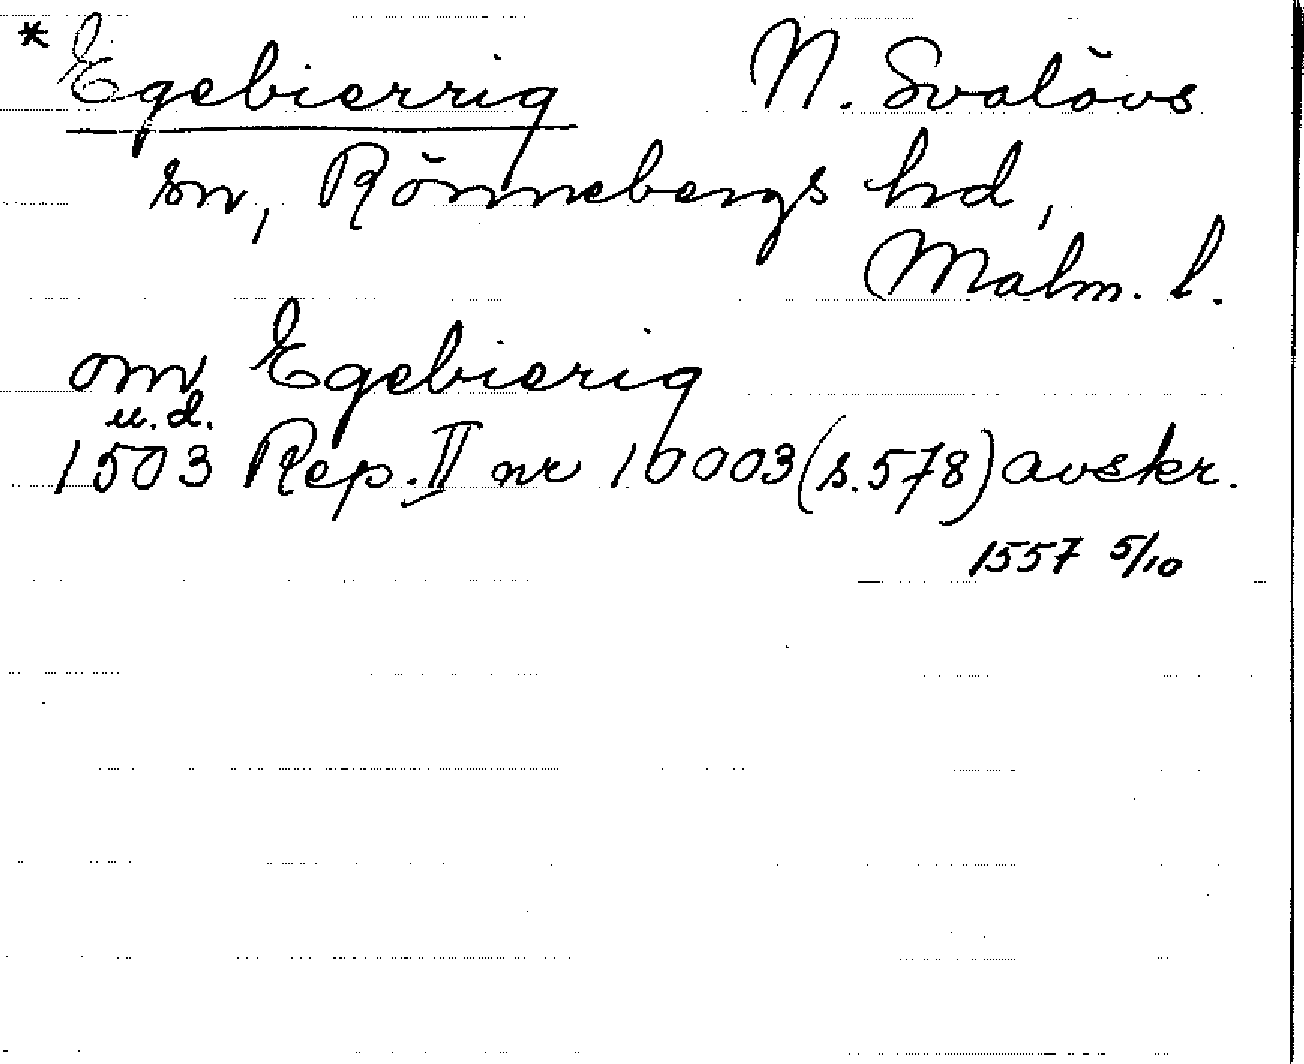 * Egebierrig N. Svalövs
sn, Rönnebergs hd,
Malm. l.
om Egebierig
u.d.
1503 Rep. II nr 10003 (s.578) avskr.
1557 5/10